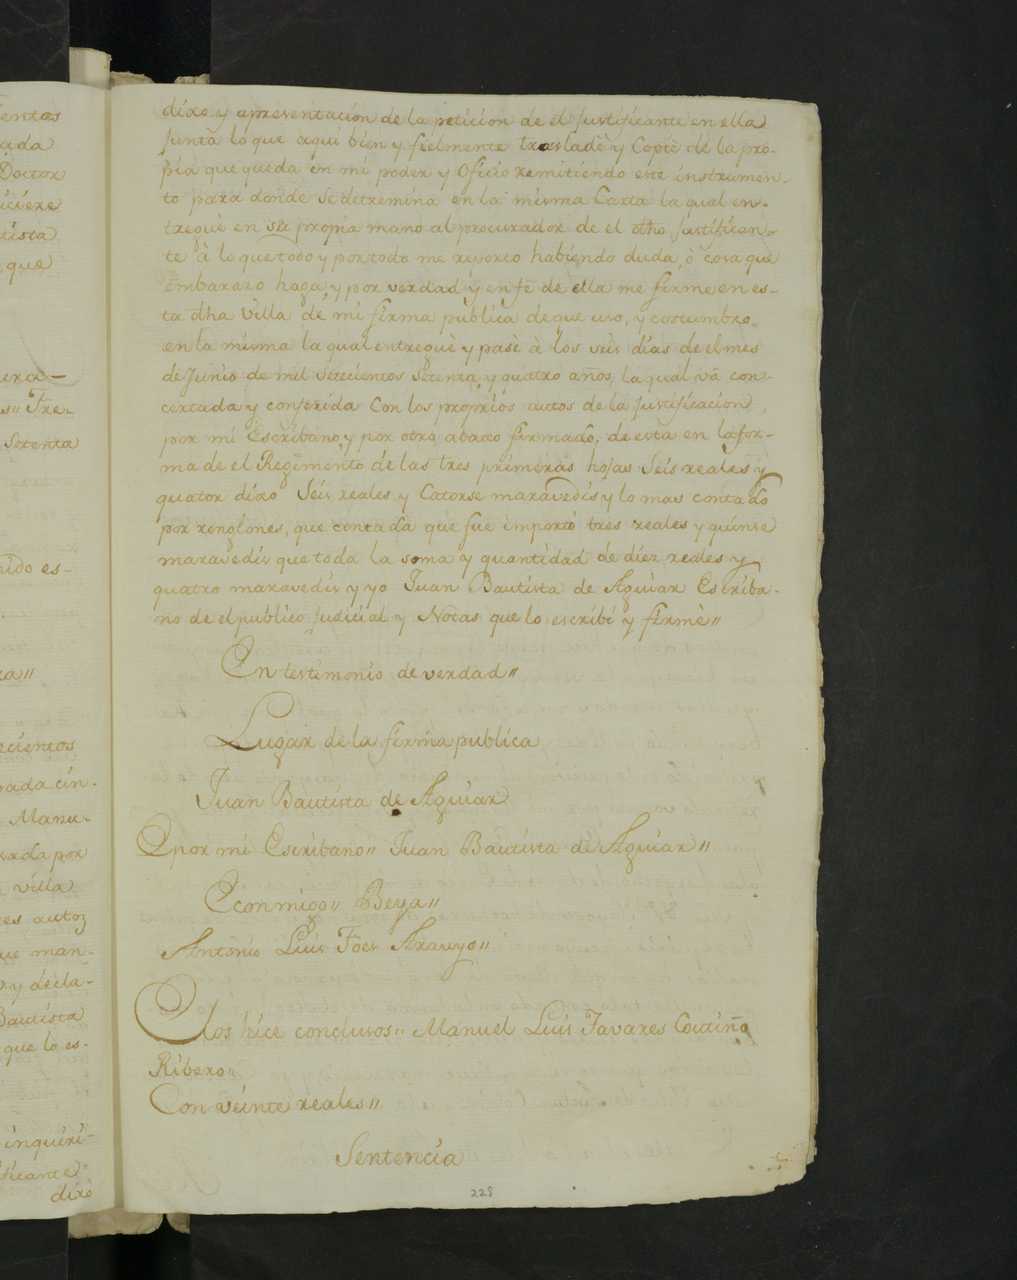 entos
cada
Doctor
iciere
tista
que
s,, Tre-
Setenta
nido es-
ecientos
pada cin-
Manu-
por
villa
es autos
ue man-
y decla-
Bautista
que lo es-
inquiri-
ficante
dixo
dixo y apresentacion de la peticion de el Justificante en ella
Junta lo que aqui bien y fielmente trasladè y Copiè de la pro-
pia que queda en mi poder y Oficio remitiendo este instrumen-
to para donde se detremina en la misma Carta la qual en-
treguè en su propia mano al procurador de el dho Justifican-
te à lo que todo y por todo me reporto habiendo duda, ò cosa que
embarazo haga, y por verdad y en fè de ella me firme en es-
ta dha Villa de mi firma publica de que uso, y costumbro
en la misma la qual entreguè y pasè à los seis dias de el mes
de Junio de mil setecientos setenta, y quatro años, la qual và con-
certada y conferida Con los proprios autos de la Justificacion
por mi Escribano, y por otro abaxo firmado, de esta en la for-
ma de el Regimento de las tres primeras hojas Seis reales y
quator dixo Seis reales y Catorse maravedis y lo mas contado
por renglones, que contada que fue importò tres reales y quinse
maravedis que toda la soma y quantidad de diez reales y
quatro maravedis y yo Juan Bautista de Aguiar Escriba-
no de el publico Judicial y Notas que lo escribi y firmè,,
En testimonio de verdad,,
Lugar de la firma publica
Juan Bautista de Aguiar
E por mi Escribano,, Juan Bautista de Aguiar,,
E conmigo,, Beya,,
Antonio Luis Foes Araujo,,
E los hice conclusos,, Manuel Luis Tavares Coutiño
Ribero,,
Con veinte reales,,
Sentencia
228